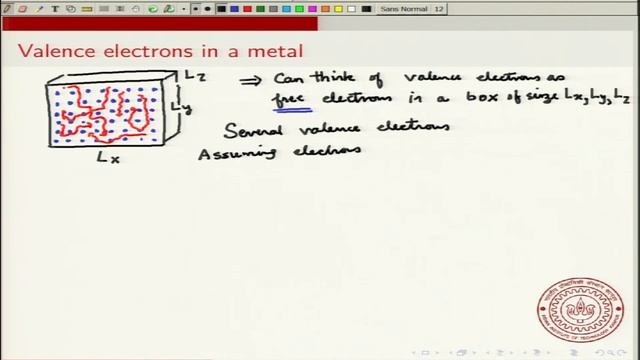 Sans Normal 12
Valence electrons in a metal
Lz
Ly
Lx
⇒ Can think of valence electrons as
free electrons in a box of size Lx, Ly, Lz
Several valence electrons
Assuming electrons